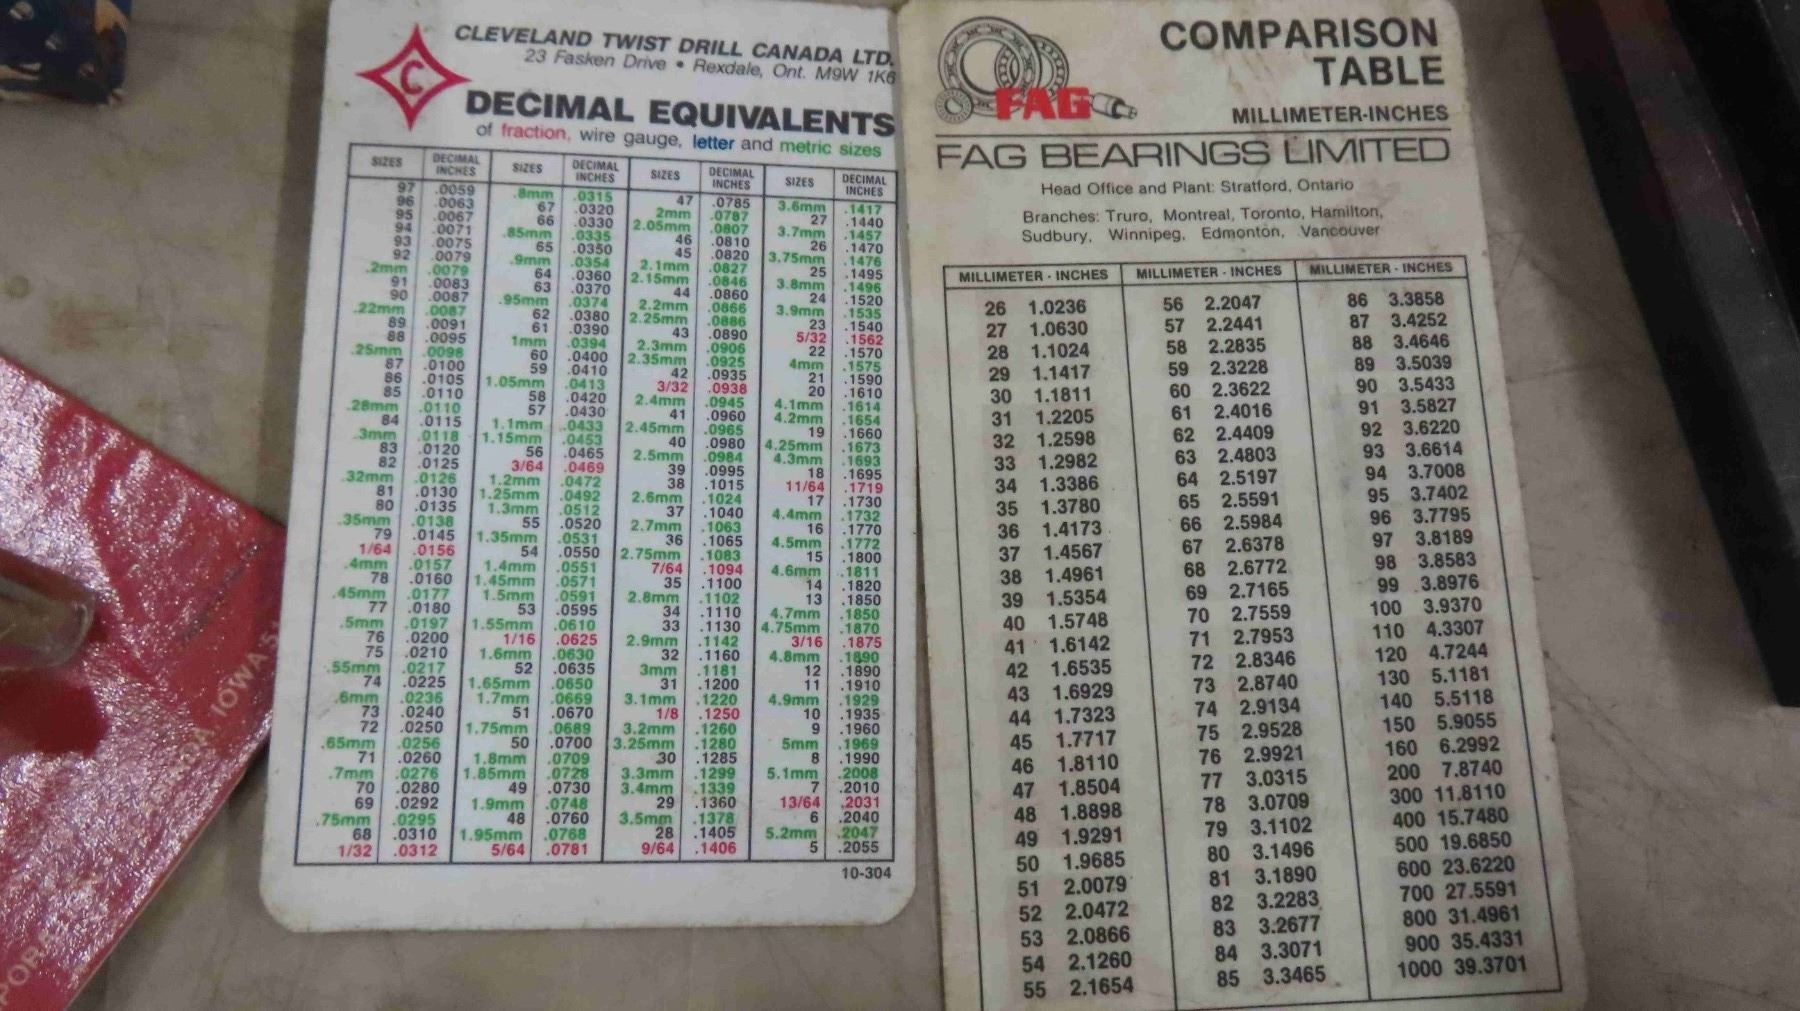 CLEVELAND TWIST DRILL CANADA LTD.
23 Fasken Drive • Rexdale, Ont. M9W 1K6
C
DECIMAL EQUIVALENTS
of fraction, wire gauge, letter and metric sizes
SIZES DECIMAL INCHES SIZES DECIMAL INCHES SIZES DECIMAL INCHES SIZES DECIMAL INCHES
97 .0059
96 .0063
95 .0067
94 .0071
93 .0075
92 .0079
.2mm .0079
91 .0083
90 .0087
.22mm .0087
89 .0091
88 .0095
.25mm .0098
87 .0100
86 .0105
85 .0110
.28mm .0110
84 .0115
.3mm .0118
83 .0120
82 .0125
.32mm .0126
81 .0130
80 .0135
.35mm .0138
79 .0145
1/64 .0156
.4mm .0157
78 .0160
.45mm .0177
77 .0180
.5mm .0197
76 .0200
75 .0210
.55mm .0217
74 .0225
.6mm .0236
73 .0240
72 .0250
.65mm .0256
71 .0260
.7mm .0276
70 .0280
69 .0292
.75mm .0295
68 .0310
1/32 .0312
.8mm .0315
67 .0320
66 .0330
.85mm .0335
65 .0350
.9mm .0354
64 .0360
63 .0370
.95mm .0374
62 .0380
61 .0390
1mm .0394
60 .0400
59 .0410
1.05mm .0413
58 .0420
57 .0430
1.1mm .0433
1.15mm .0453
56 .0465
3/64 .0469
1.2mm .0472
1.25mm .0492
1.3mm .0512
55 .0520
1.35mm .0531
54 .0550
1.4mm .0551
1.45mm .0571
1.5mm .0591
53 .0595
1.55mm .0610
1/16 .0625
1.6mm .0630
52 .0635
1.65mm .0650
1.7mm .0669
51 .0670
1.75mm .0689
50 .0700
1.8mm .0709
1.85mm .0728
49 .0730
1.9mm .0748
48 .0760
1.95mm .0768
5/64 .0781
47 .0785
2mm .0787
2.05mm .0807
46 .0810
45 .0820
2.1mm .0827
2.15mm .0846
44 .0860
2.2mm .0866
2.25mm .0886
43 .0890
2.3mm .0906
2.35mm .0925
42 .0935
3/32 .0938
2.4mm .0945
41 .0960
2.45mm .0965
40 .0980
2.5mm .0984
39 .0995
38 .1015
2.6mm .1024
37 .1040
2.7mm .1063
36 .1065
2.75mm .1083
7/64 .1094
35 .1100
2.8mm .1102
34 .1110
33 .1130
2.9mm .1142
32 .1160
3mm .1181
31 .1200
3.1mm .1220
1/8 .1250
3.2mm .1260
3.25mm .1280
30 .1285
3.3mm .1299
3.4mm .1339
29 .1360
3.5mm .1378
28 .1405
9/64 .1406
3.6mm .1417
27 .1440
3.7mm .1457
26 .1470
3.75mm .1476
25 .1495
3.8mm .1496
24 .1520
3.9mm .1535
23 .1540
5/32 .1562
22 .1570
4mm .1575
21 .1590
20 .1610
4.1mm .1614
4.2mm .1654
19 .1660
4.25mm .1673
4.3mm .1693
18 .1695
11/64 .1719
17 .1730
4.4mm .1732
16 .1770
4.5mm .1772
15 .1800
4.6mm .1811
14 .1820
13 .1850
4.7mm .1850
4.75mm .1870
3/16 .1875
4.8mm .1890
12 .1890
11 .1910
4.9mm .1929
10 .1935
9 .1960
5mm .1969
8 .1990
5.1mm .2008
7 .2010
13/64 .2031
6 .2040
5.2mm .2047
5 .2055
10-304
FAG
COMPARISON
TABLE
MILLIMETER-INCHES
FAG BEARINGS LIMITED
Head Office and Plant: Stratford, Ontario
Branches: Truro, Montreal, Toronto, Hamilton,
Sudbury, Winnipeg, Edmonton, Vancouver
MILLIMETER - INCHES MILLIMETER - INCHES MILLIMETER - INCHES
26 1.0236
27 1.0630
28 1.1024
29 1.1417
30 1.1811
31 1.2205
32 1.2598
33 1.2982
34 1.3386
35 1.3780
36 1.4173
37 1.4567
38 1.4961
39 1.5354
40 1.5748
41 1.6142
42 1.6535
43 1.6929
44 1.7323
45 1.7717
46 1.8110
47 1.8504
48 1.8898
49 1.9291
50 1.9685
51 2.0079
52 2.0472
53 2.0866
54 2.1260
55 2.1654
56 2.2047
57 2.2441
58 2.2835
59 2.3228
60 2.3622
61 2.4016
62 2.4409
63 2.4803
64 2.5197
65 2.5591
66 2.5984
67 2.6378
68 2.6772
69 2.7165
70 2.7559
71 2.7953
72 2.8346
73 2.8740
74 2.9134
75 2.9528
76 2.9921
77 3.0315
78 3.0709
79 3.1102
80 3.1496
81 3.1890
82 3.2283
83 3.2677
84 3.3071
85 3.3465
86 3.3858
87 3.4252
88 3.4646
89 3.5039
90 3.5433
91 3.5827
92 3.6220
93 3.6614
94 3.7008
95 3.7402
96 3.7795
97 3.8189
98 3.8583
99 3.8976
100 3.9370
110 4.3307
120 4.7244
130 5.1181
140 5.5118
150 5.9055
160 6.2992
200 7.8740
300 11.8110
400 15.7480
500 19.6850
600 23.6220
700 27.5591
800 31.4961
900 35.4331
1000 39.3701
IOWA